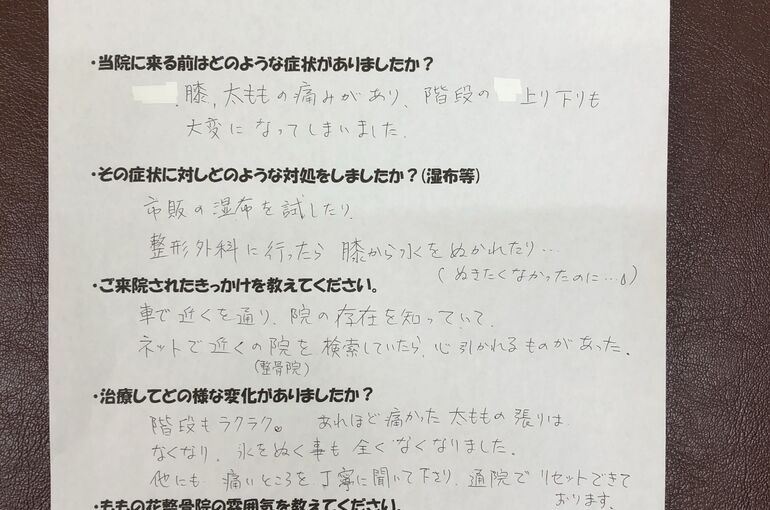 ・当院に来る前はどのような症状がありましたか？
、膝、太ももの痛みがあり、階段の 上り下りも
大変になってしまいました。
・その症状に対しどのような対処をしましたか？(湿布等)
市販の湿布を試したり、
整形外科に行ったら 膝から水をぬかれたり…
(ぬきたくなかったのに…)
・ご来院されたきっかけを教えてください。
車で近くを通り、院の存在を知っていて、
ネットで近くの院を検索していたら、心引かれるものがあった。
(整骨院)
・治療してどの様な変化がありましたか？
階段もラクラク。 あれほど痛かった太ももの張りは
なくなり、水をぬく事も全くなくなりました。
他にも痛いところを丁寧に聞いて下さり、通院でリセットできて
おります。
・ももの花整骨院の雰囲気を教えてください。